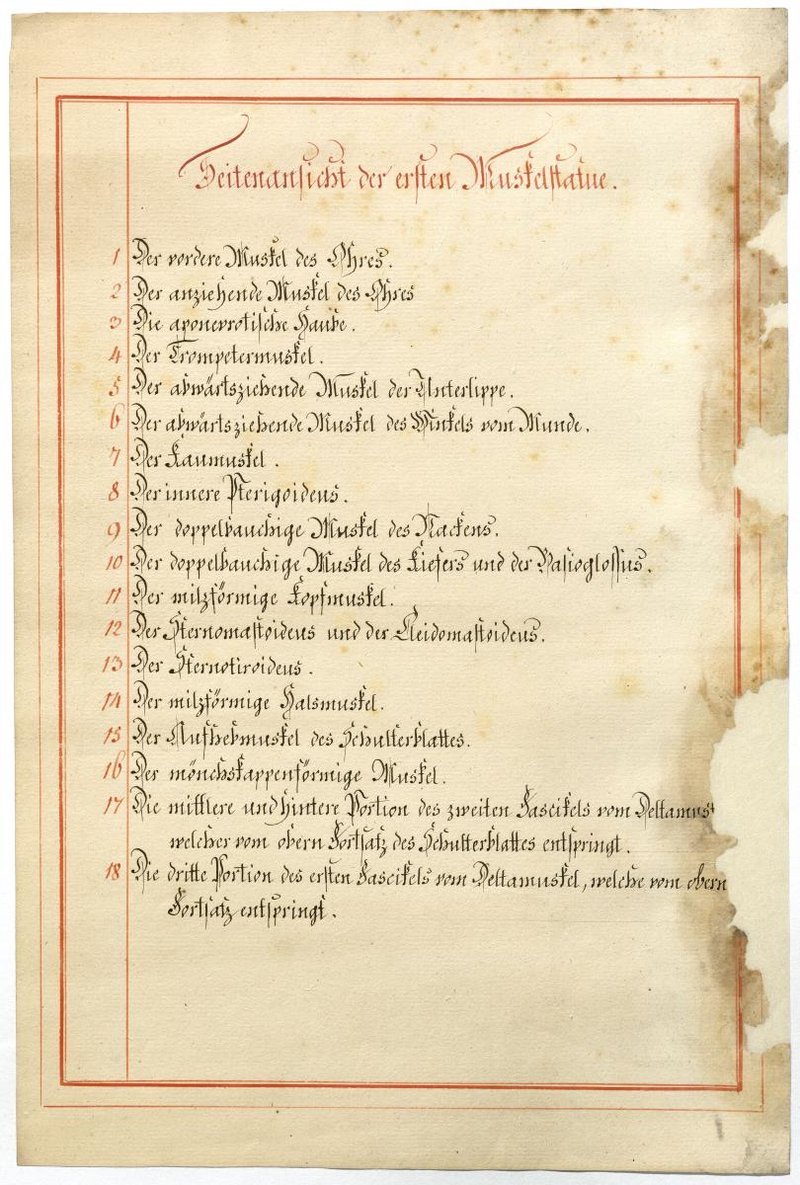 Seitenansicht der ersten Muskelstatue.
1 Der vordere Muskel des Ohres.
2 Der anziehende Muskel des Ohres
3 Die aponevrotische Haube.
4 Der Trompetermuskel.
5 Der abwärtsziehende Muskel der Unterlippe.
6 Der abwärtsziehende Muskel des Winkels vom Munde.
7 Der Kaumuskel.
8 Der innere Pterigoideus.
9 Der doppelbauchige Muskel des Nackens.
10 Der doppelbauchige Muskel des Kiefers und der Basioglossus.
11 Der milzförmige Kopfmuskel.
12 Der Sternomastoideus und der Cleidomastoideus.
13 Der Sternotiroideus.
14 Der milzförmige Halsmuskel.
15 Der Aufhebmuskel des Schulterblattes.
16 Der mönchskappenförmige Muskel.
17 Die mittlere und hintere Portion des zweiten Fascikels vom Deltamusk
welcher vom obern Fortsatz des Schulterblattes entspringt.
18 Die dritte Portion des ersten Fascikels vom Deltamuskel, welche vom obern
Fortsatz entspringt.